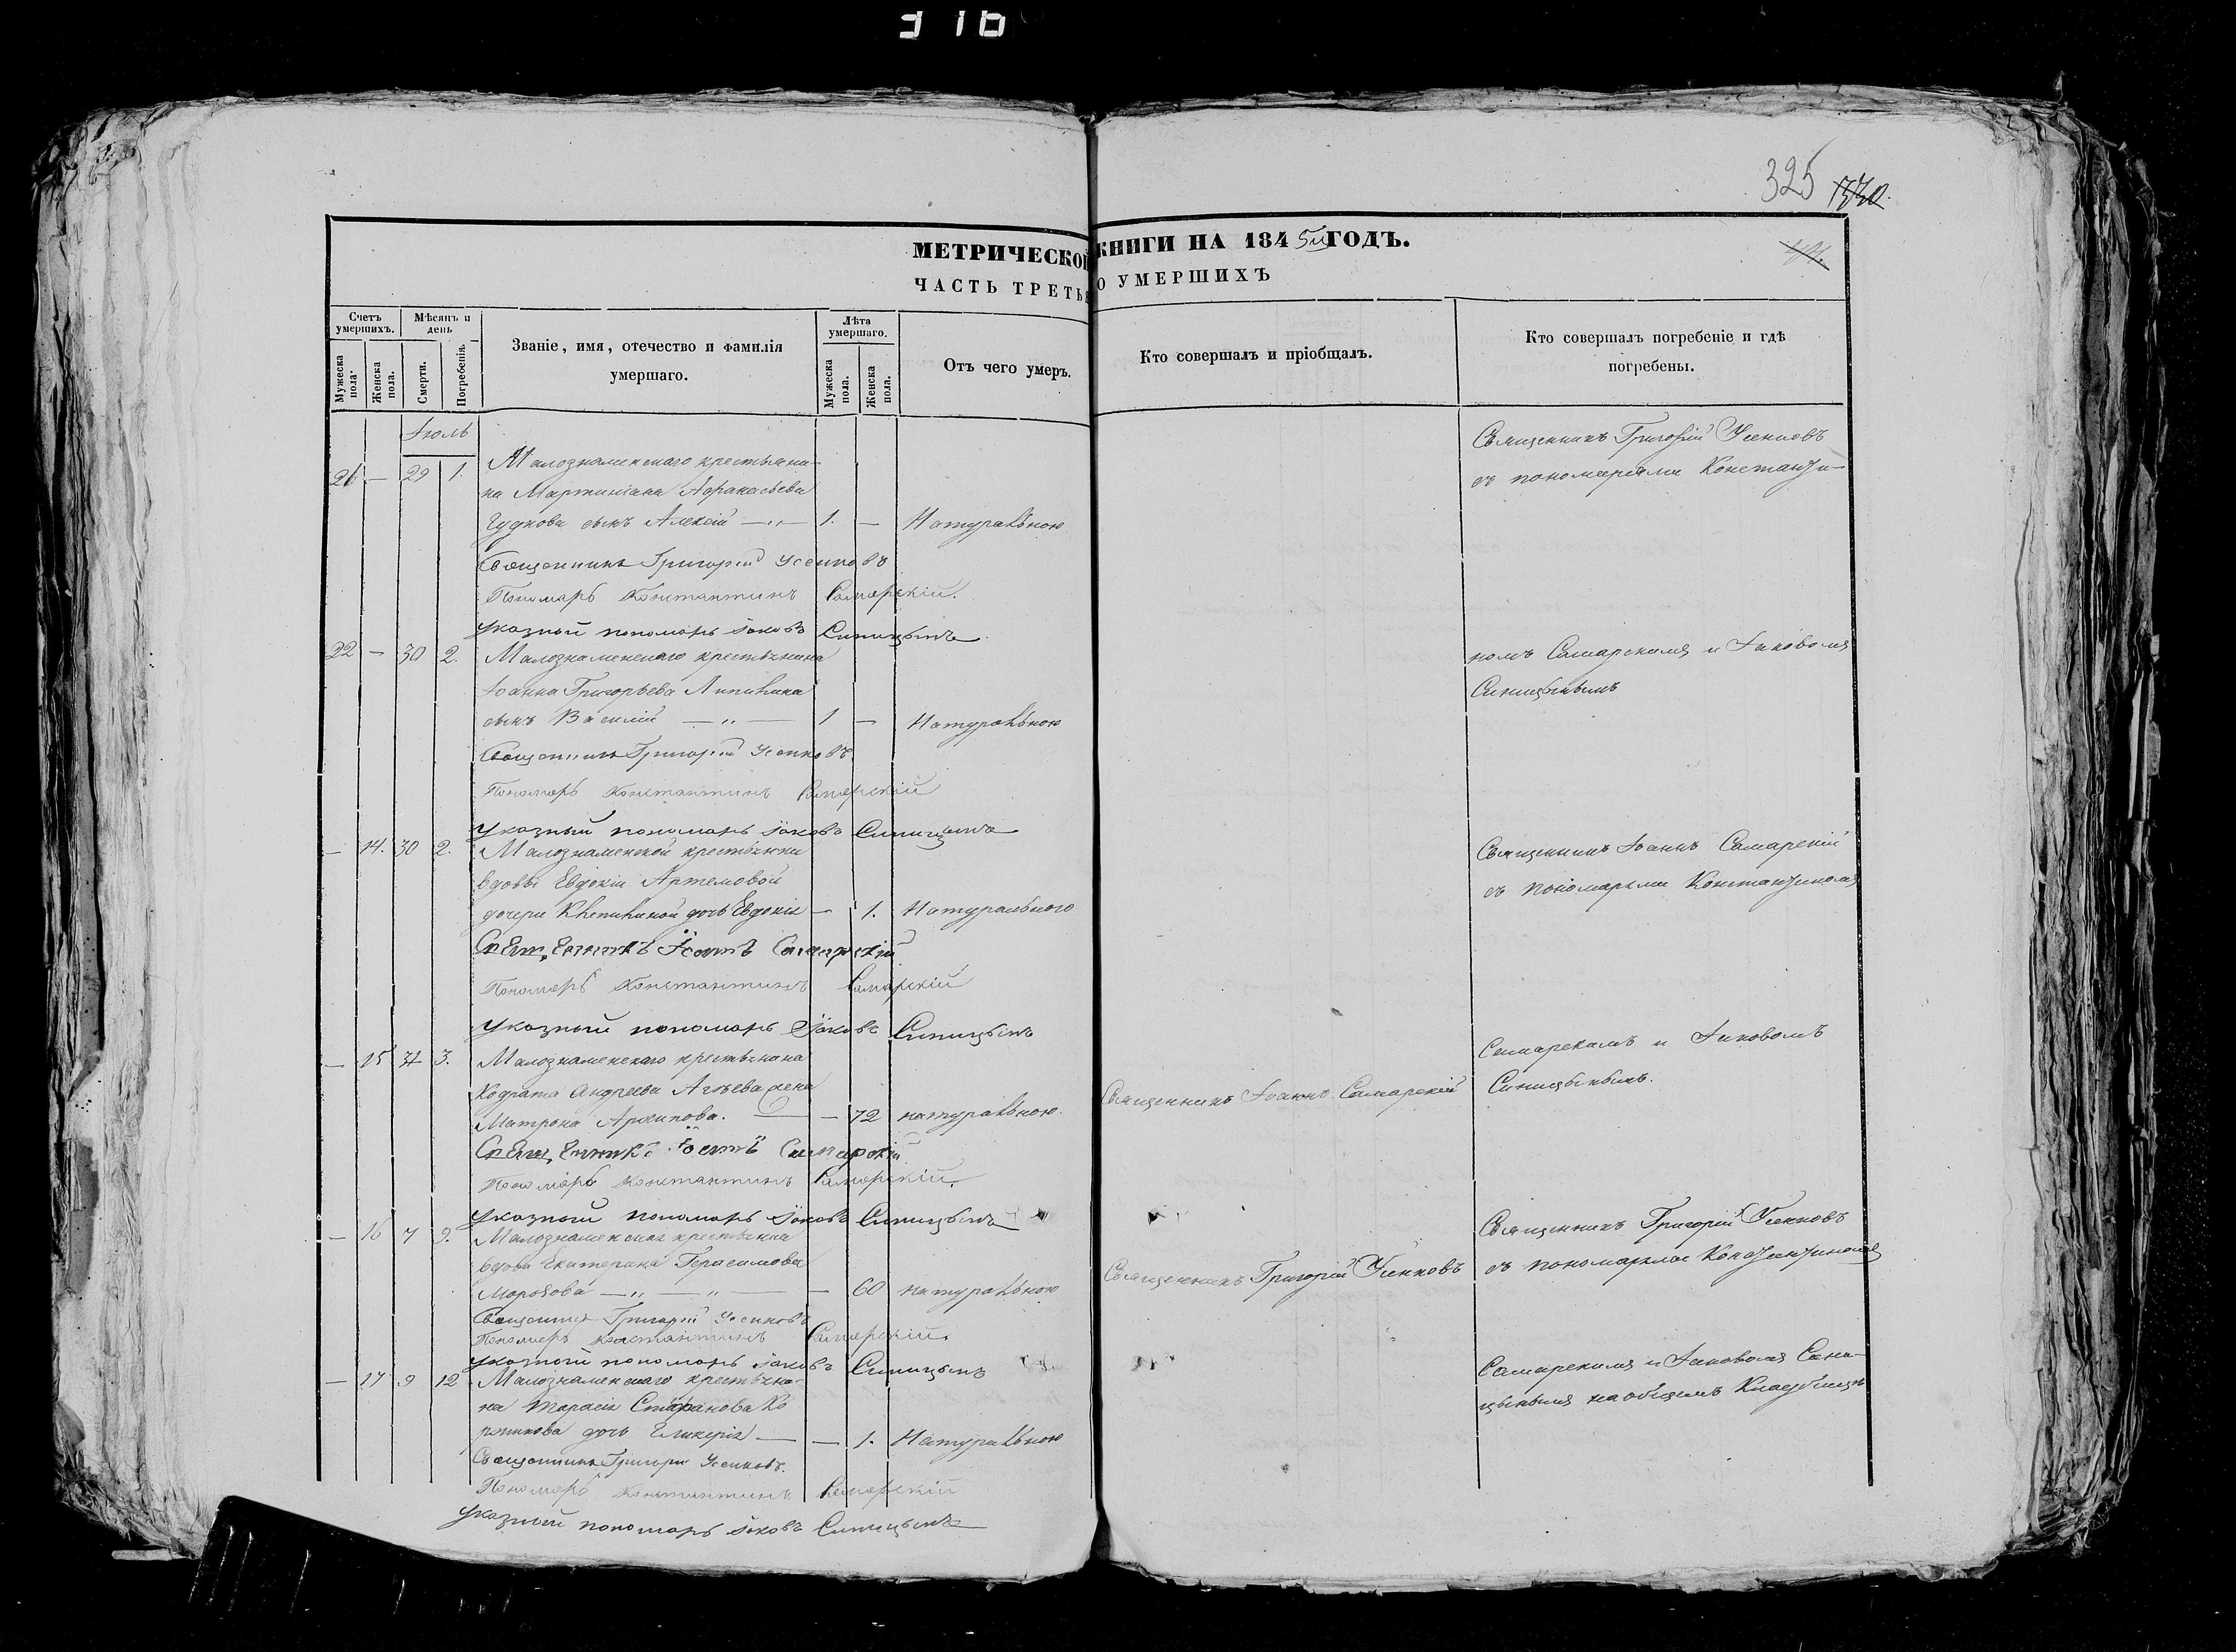 316
325
МЕТРИЧЕСКОЙ КНИГИ НА 1845й ГОДЪ.
ЧАСТЬ ТРЕТЬЯ О УМЕРШИХЪ
Счетъ умершихъ.
Мужеска пола.
Женска пола.
Мѣсяцъ и день
Смерти.
Погребенія.
Званіе, имя, отечество и фамилія
умершаго.
Лѣта умершаго.
Мужеска пола.
Женска пола.
Отъ чего умеръ.
Кто совершалъ и пріобщалъ.
Кто совершалъ погребеніе и гдѣ
погребены.
Іюль
21 — 29 1. Малознаменскаго крестьяни-
на Мартиніана Афанасьева
Гуднова сынъ Алексій — „ — 1. — Натуральною
Священникъ Григорій Усенковъ
Пономарь Константинъ Самарскій.
Указный пономарь Іаковъ Синицынъ
Священникъ Григорій Усенковъ
съ пономарями Константи-
22 — 30 2. Малознаменскаго крестьянина
Іоанна Григорьева
сынъ Василій — „ — 1 — Натуральною
Священникъ Григорій Усенковъ
Пономарь Константинъ Самарскій
Указный пономарь Іаковъ Синицынъ
номъ Самарскимъ и Іаковомъ
Синицынымъ
— 14. 30 2. Малознаменской крестьянки
вдовы Евдокіи Артемовой
дочери дочь Евдокія — 1. Натуральною
Священникъ Іоаннъ Самарскій
Пономарь Константинъ Самарскій
Указный пономарь Іаковъ Синицынъ
Священникъ Іоаннъ Самарскій
съ пономарями Константиномъ
— 15 31 3. Малознаменскаго крестьянина
Кодрата Андреева жена
Матрона Архипова. — — 72 натуральною.
Священникъ Іоаннъ Самарскій
Пономарь Константинъ Самарскій.
Указный пономарь Іаковъ Синицынъ
Священникъ Іоаннъ Самарскій
Самарскимъ и Іаковомъ
Синицынымъ.
— 16 7 9. Малознаменская крестьянка
вдова Екатерина Герасимова
Морозова — „ — „ — — 60 натуральною
Священникъ Григорій Усенковъ
Пономарь Константинъ Самарскій.
Указный пономарь Іаковъ Синицынъ
Священникъ Григорій Усенковъ
Священникъ Григорій Усенковъ
съ пономарями Константиномъ
— 17 9 12 Малознаменскаго крестьяни-
на Тарасія Стефанова Ко
дочь Гликерія — — 1. Натуральною
Священникъ Григорій Усенковъ.
Пономарь Константинъ Самарскій
Указный пономарь Іаковъ Синицынъ
Самарскимъ и Іаковомъ Сини-
цынымъ на общемъ Кладбищѣ